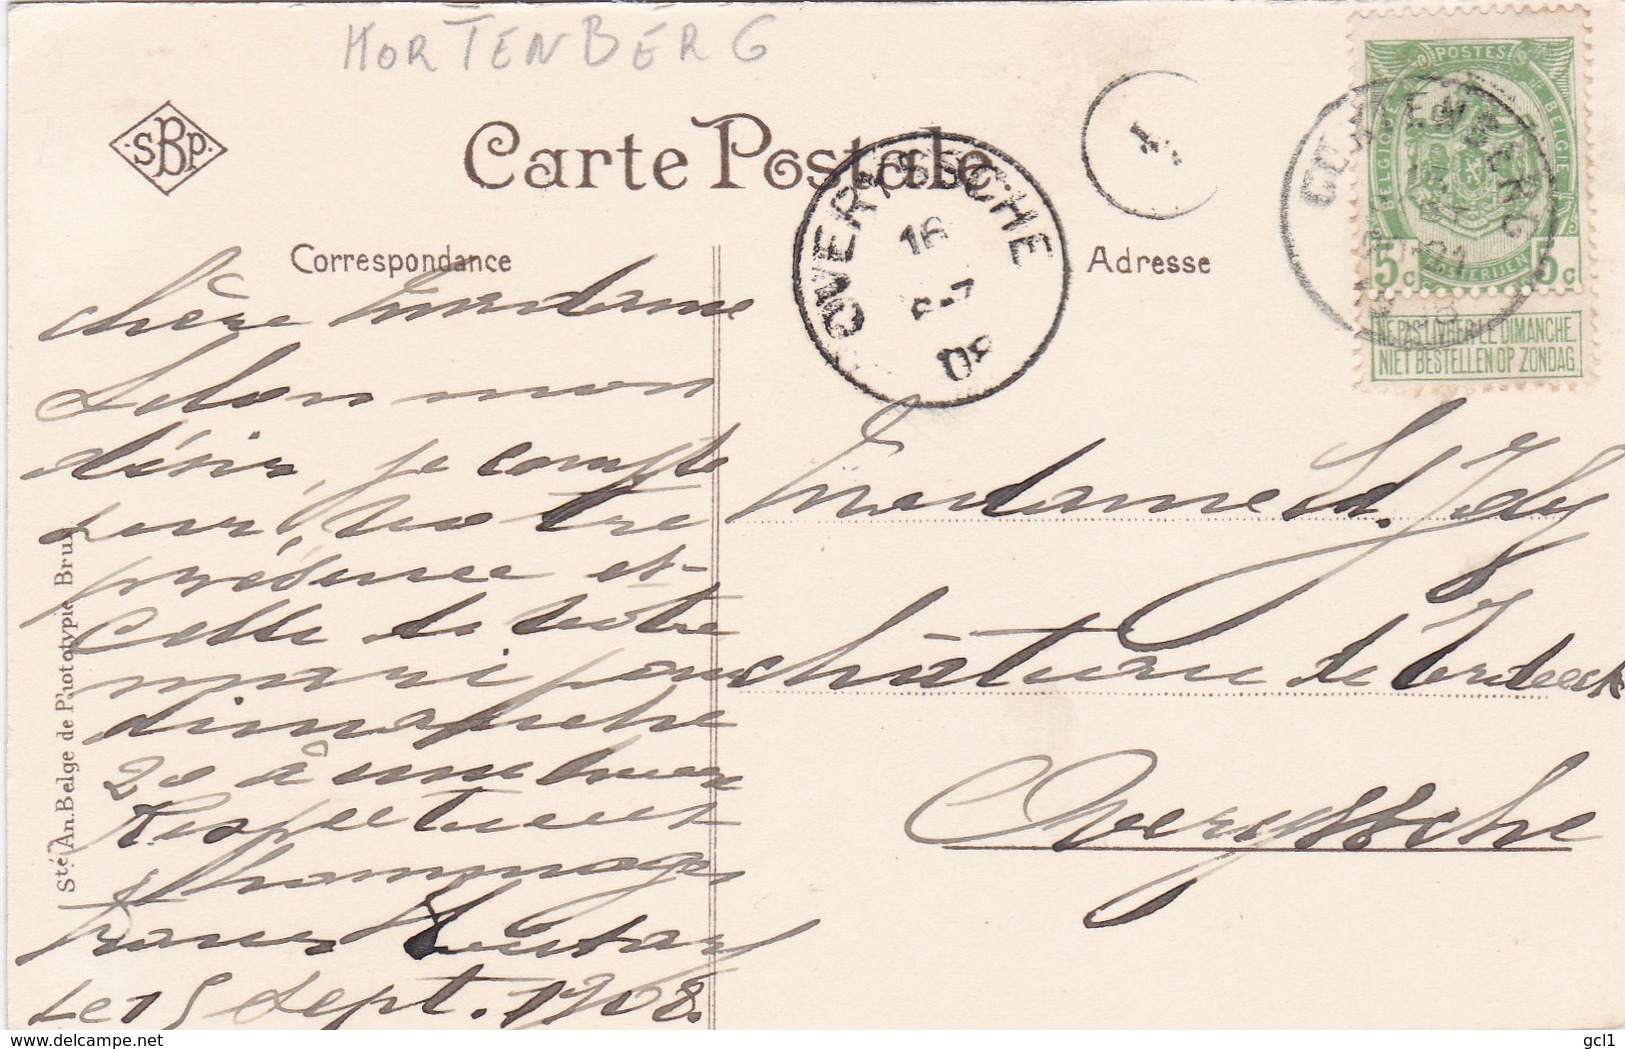 KORTENBERG
SBP
Carte Postale
Correspondance
Adresse
OVERYSSCHE
16
6-7
08
POSTES
BELGIQUE
BELGIE
POSTERIJEN
5c 5c
NE PAS LIVRER LE DIMANCHE.
NIET BESTELLEN OP ZONDAG.
Chère Madame
Selon mon
désir, je compte
sur, votre
présence et
Celle de votre
mari pour
dimanche
20 à une heure
Respectueux
hommages
Le 15 Sept. 1908.
Madame
Château de
Overyssche
Sté An. Belge de Phototypie Brux
www.delcampe.net
gcl1